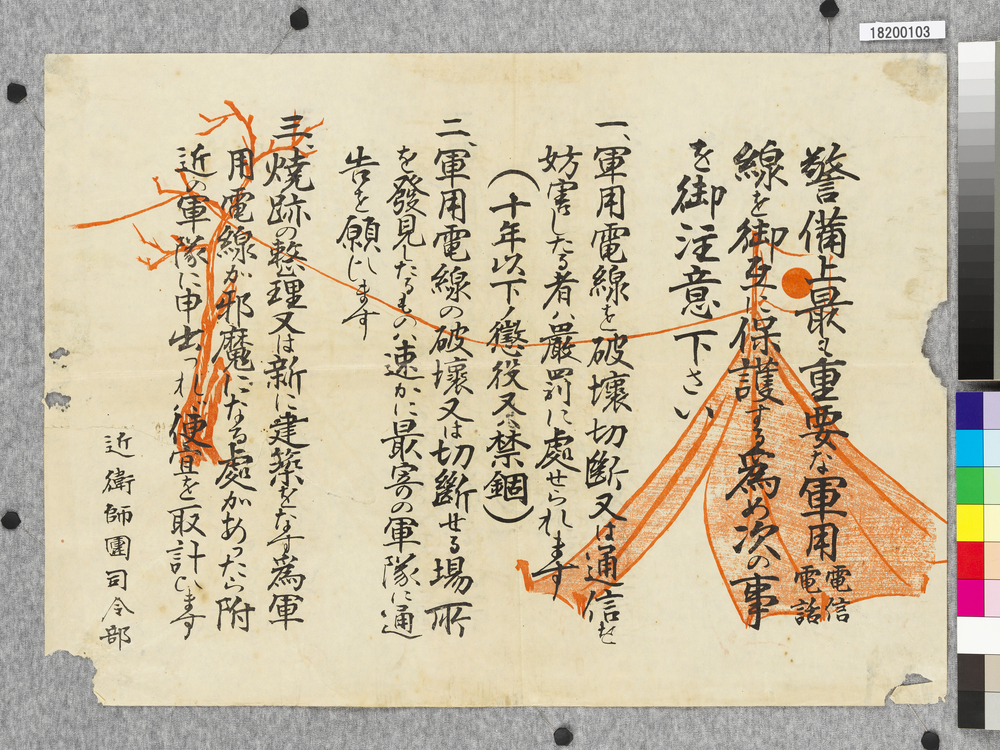 18200103
警備上最も重要な軍用電信電話
線を御互に保護する為め次の事
を御注意下さい
一、軍用電線を破壊切断又は通信を
妨害したる者ハ嚴罰に處せられます
（十年以下ノ懲役又ハ禁錮）
二、軍用電線の破壞又は切斷せる場所
を發見したるもの速かに最寄の軍隊に通
告を願ひます
三、焼跡の整理又は新に建築をなす為軍
用電線が邪魔になる處があつたら附
近の軍隊に申出づれバ便宜を取計ひます
近衛師團司令部